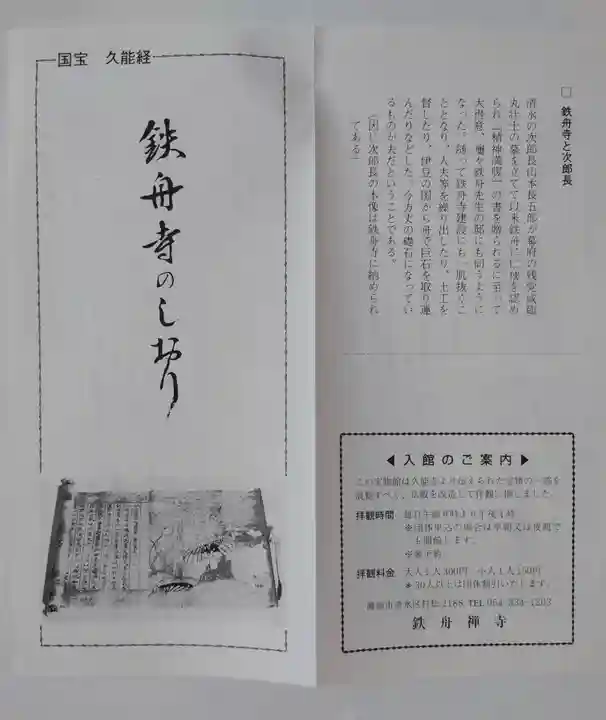 国宝 久能経
鉄舟寺のしおり
□ 鉄舟寺と次郎長
清水の次郎長山本長五郎が幕府の残党咸臨
丸壮士の墓を立てて以来鉄舟に
られ「精神満腹」の書を贈られるに至って
大得意、屢々鉄舟先生の邸にも伺うように
なった。随って鉄舟寺建設にも一肌抜ぐこ
ととなり、人夫等を繰り出したり、土工を
督したり、伊豆の国から舟で巨石を取り運
んだりなどした。今方丈の礎石になってい
るものが夫だということである。
(因に次郎長の木像は鉄舟寺に納められ
てある)
◀入館のご案内▶
この宝物館は久能寺より伝えられた宝物の一部を
展観すべく、仏殿を改造して拝観に供しました。
拝観時間 毎日午前9時より午後4時
※団体申込の場合は早朝又は夜間で
も開館します。
拝観料金 大人1人400円 小人1人150円
※30人以上は団体割引いたします。
静岡市清水区村松2188 TEL 054-334-1203
鉄舟禅寺